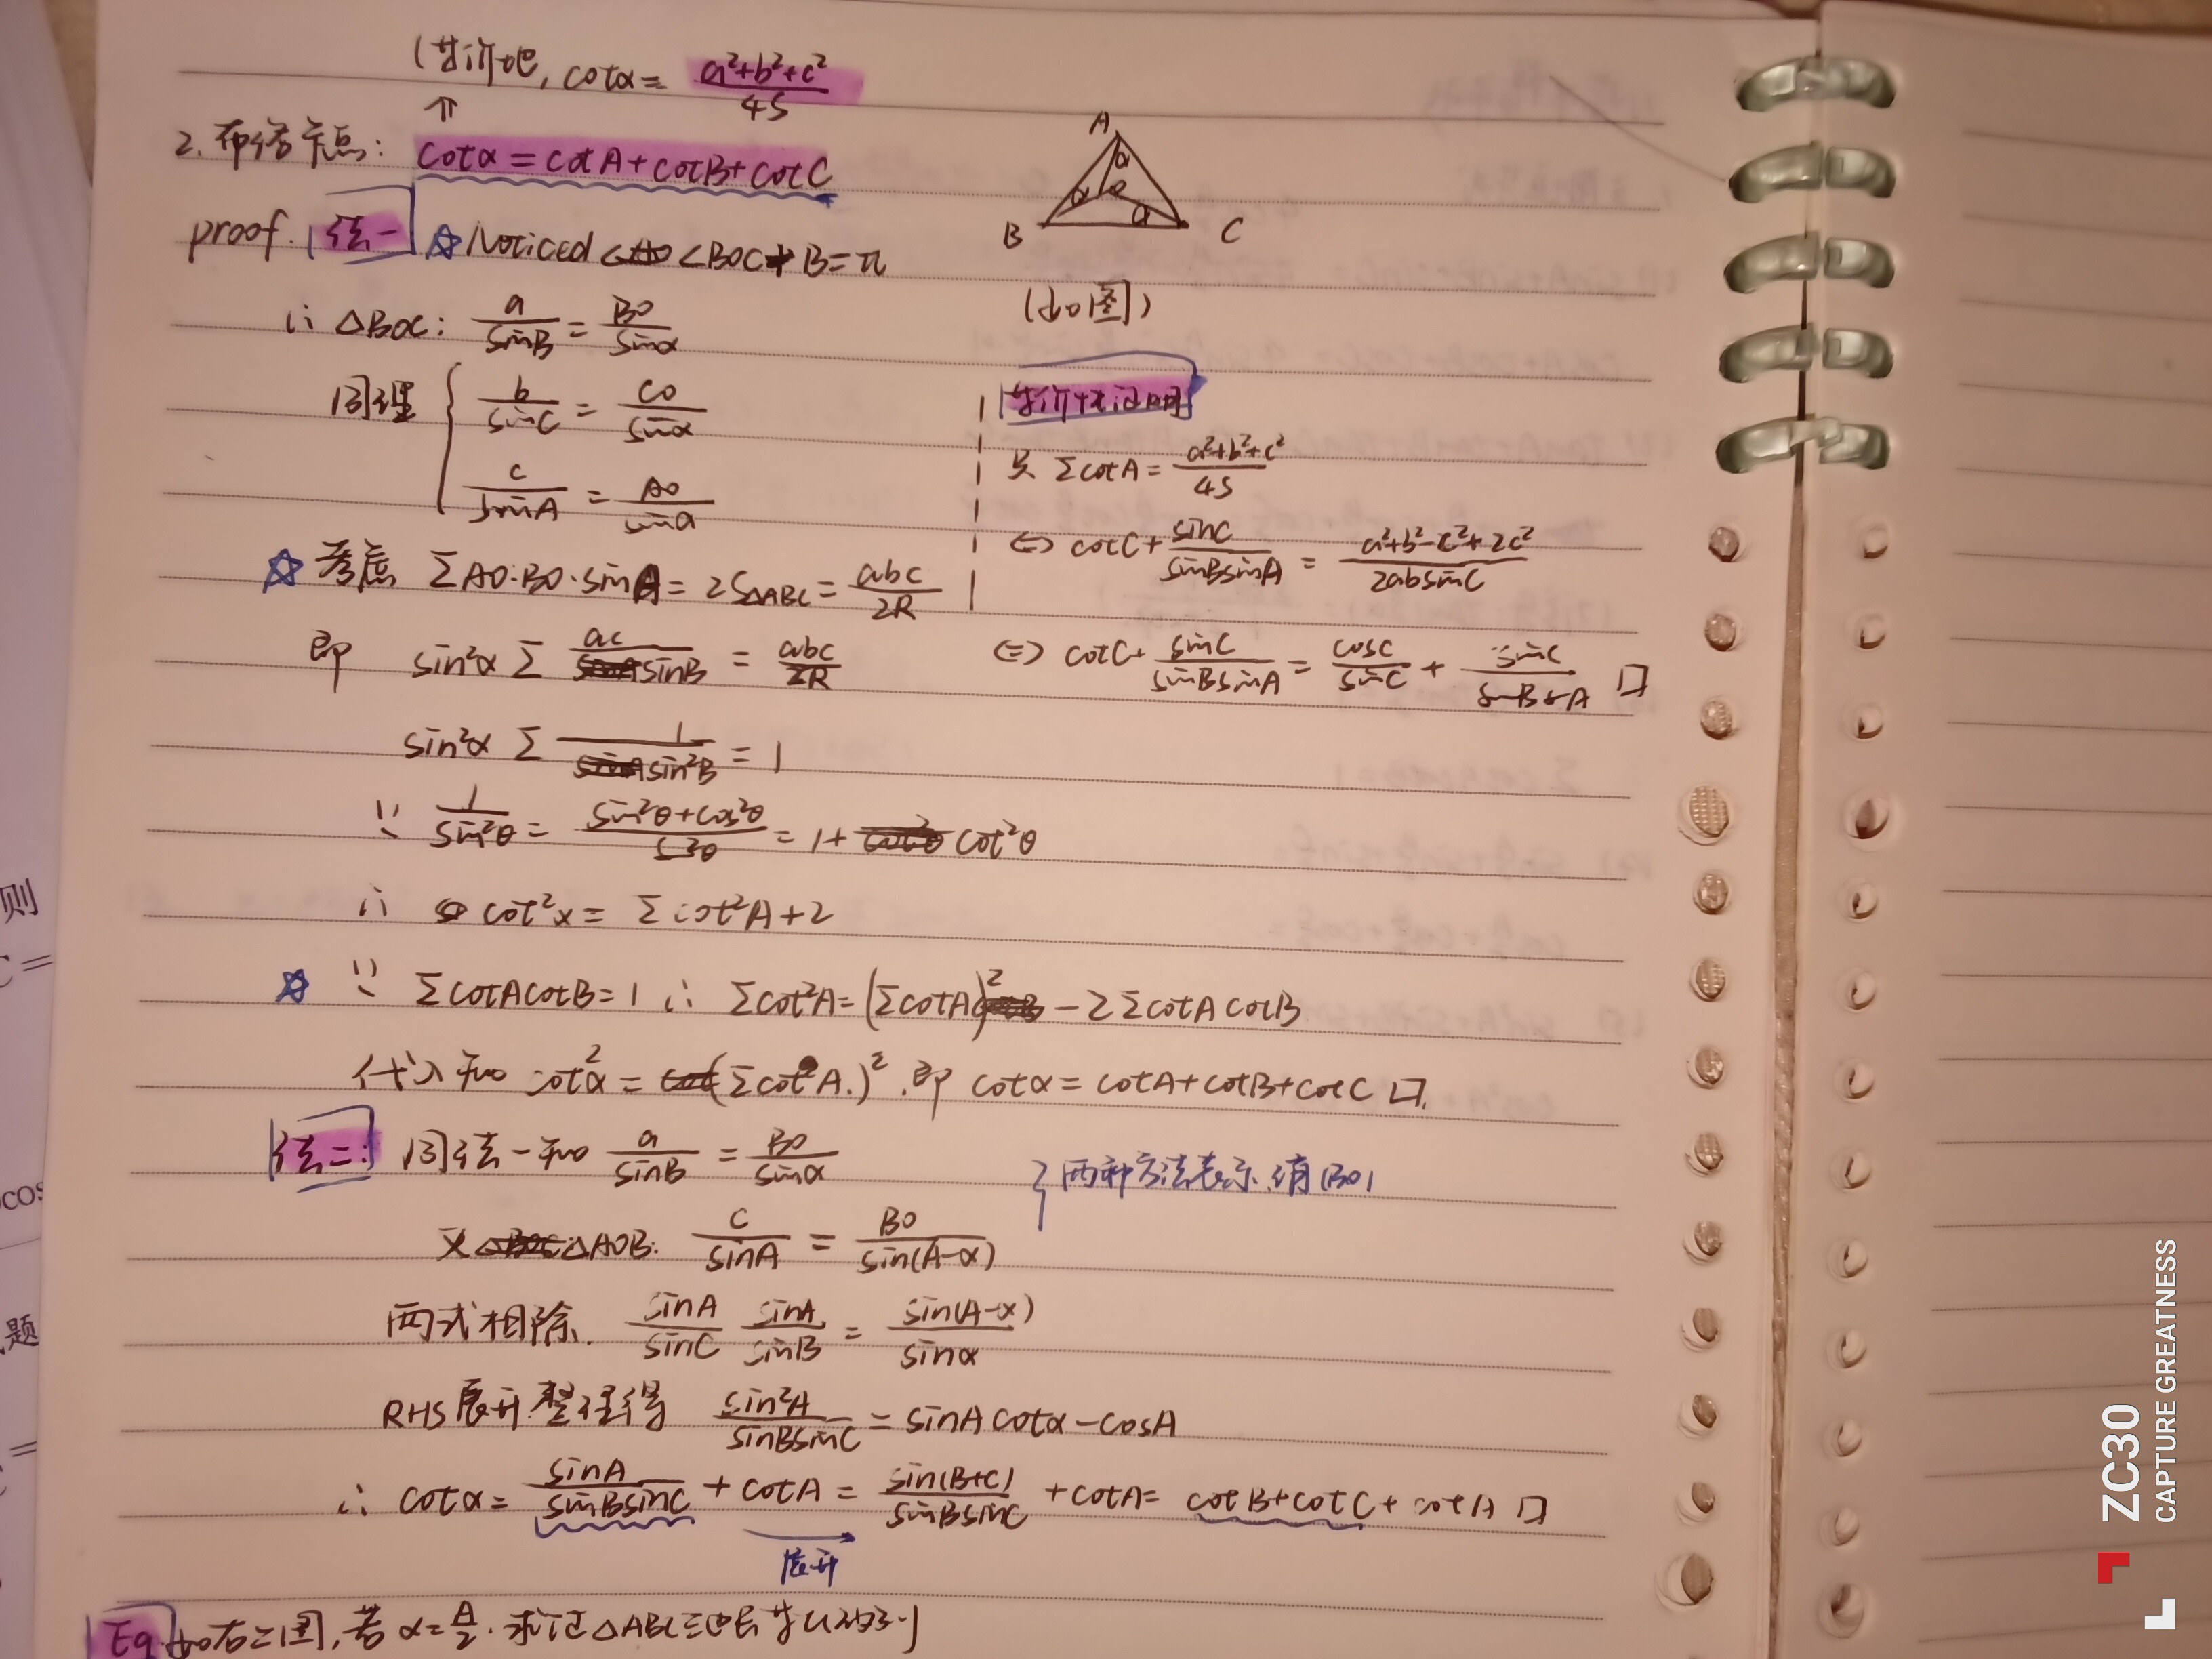 (等价地, cotα = a²+b²+c² / 4S
⇑
2. 布洛卡点: cotα = cotA + cotB + cotC
A
α
α O
α
B C
(如图)
proof. 法一 ☆ Noticed ∠BOC + B = π
∴ △BOC: a/sinB = BO/sinα
同理 { b/sinC = CO/sinα
c/sinA = AO/sinα
☆ 考虑 ΣAO·BO·sinA = 2S△ABC = abc/2R
即 sin²α Σ ac/sinB = abc/2R
sin²α Σ 1/sin²B = 1
∵ 1/sin²θ = sin²θ+cos²θ / s²θ = 1 + cot²θ
∴ cot²x = Σcot²A + 2
☆ ∵ ΣcotAcotB = 1 ∴ Σcot²A = (ΣcotA)² − 2ΣcotAcotB
代入知 cot²α = (ΣcotA.)². 即 cotα = cotA + cotB + cotC □.
等价性证明
只 ΣcotA = a²+b²+c² / 4S
⇔ cotC + sinC/sinBsinA = a²+b²−c²+2c² / 2absinC
⇔ cotC + sinC/sinBsinA = cosC/sinC + sinC/sinBsinA □
法二: 同法一知 a/sinB = BO/sinα
} 两种方法表示, 消|BO|
又 △AOB: c/sinA = BO/sin(A−α)
两式相除. sinA/sinC sinA/sinB = sin(A−α)/sinα
RHS展开整理得 sin²A/sinBsinC = sinAcotα − cosA
∴ cotα = sinA/sinBsinC + cotA = sin(B+C)/sinBsinC + cotA = cotB + cotC + cotA □
展开
Eg 如右上图, 若 α = A/2. 求证 △ABC三边长等比
则
C =
cos
题
=
ZC30
CAPTURE GREATNESS